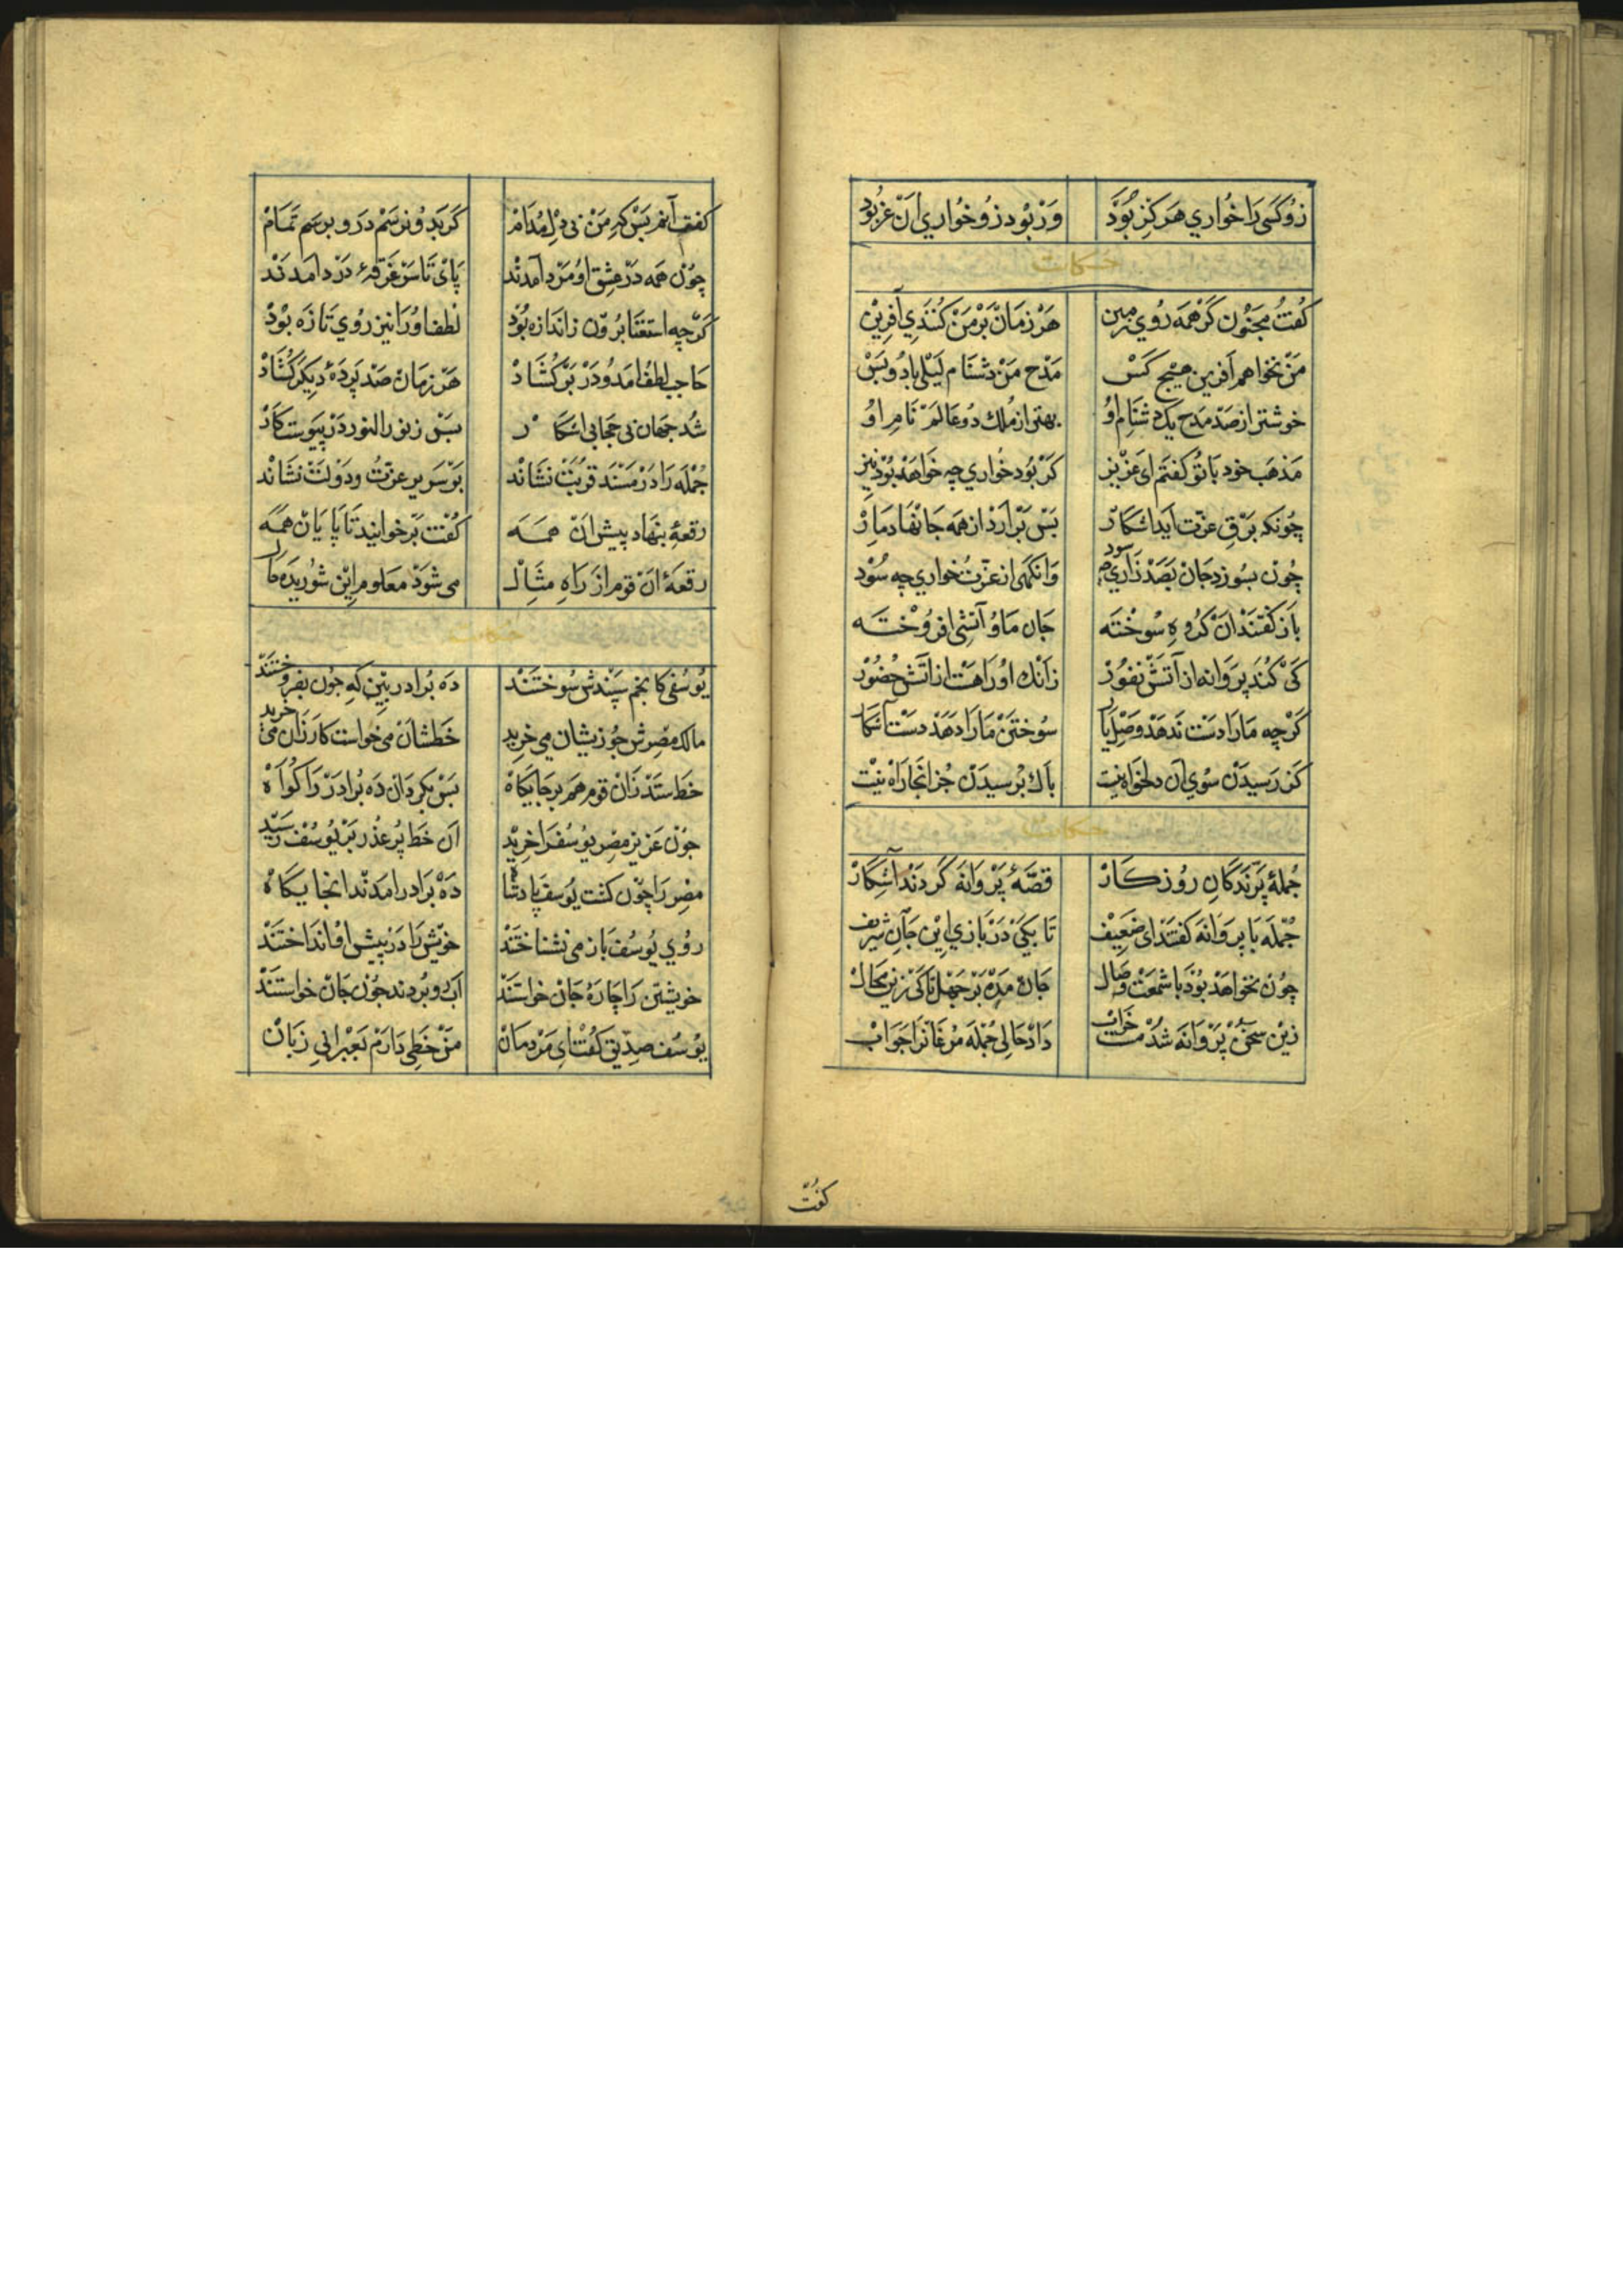 زو کسی را خواری هرکز نبود ور بود زو خواری ان عز بود
حکایت
کفت مجنون کر همه روی زمین هر زمان بر من کنندی آفرین
من نخواهم آفرین هیچ کس مدح من دشنام لیلی باد و بس
خوشتر از صد مدح یک دشنام او بهتر از ملک دو عالم نام او
مذهب خود با تو کفتم ای عزیز کر بود خواری چه خواهد بود نیز
چونکه برق عزت اید اشکار بس بر ارد از همه جانها دمار
چون بسوزد جان بصد زاری چه سود وانکهی از عزت خواری چه سود
باز کفتند ان کروه سوخته جان ما و آتش افروخته
کی کند پروانه از آتش نفور زانک او را هست از آتش حضور
کرچه ما را دست ندهد وصل یار سوختن ما را دهد دست آشکار
کر رسیدن سوی ان دلخواه نیست باک برسیدن جز انجا راه نیست
حکایت
جملهٔ پرندکان روزکار قصهٔ پروانه کردند آشکار
جمله با پروانه کفتند ای ضعیف تا بکی در بازی این جان شریف
چون نخواهد بود با شمعت وصال جان مده بر جهل تا کی زین محال
زین سخن پروانه شد مست خراب داد حالی جمله مرغانرا جواب
کفت
کفت آنم بس که من بی دل مدام کر بدو نرسم درو برسم تمام
چون همه در عشق او مرد آمدند پای تا سر غرقهٔ درد امدند
کرچه استغنا برون ز اندازه بود لطف او را نیز روی تازه بود
حاجب لطف امد و در بر کشاد هر زمان صد پردهٔ دیکر کشاد
شد جهان بی حجابی اشکار بس ز نور النور در پیوست کار
جمله را در مسند قربت نشاند بر سریر عزت و دولت نشاند
رقعهٔ بنهاد پیش ان همه کفت بر خوانید تا پایان همه
رقعهٔ ان قوم از راه مثال می شود معلوم این شوریده حال
حکایت
یوسفی کانجم سپندش سوختند ده برادر بین که جون بفروختند
مالک مصرش جو زیشان می خرید خطشان می خواست کارزان می خرید
خط ستد زان قوم هم بر جایکاه بس بکرد ان ده برادر را کواه
جون عزیز مصر یوسف را خرید ان خط پر عذر بر یوسف رسید
مصر را چون کشت یوسف پادشاه ده برادر امدند انجایکاه
روی یوسف باز می نشناختند خویش را در پیش او انداختند
خویشتن را چارهٔ جان خواستند اب رو بردند جون جان خواستند
یوسف صدیق کفت ای مردمان من خطی دارم بعبرانی زبان